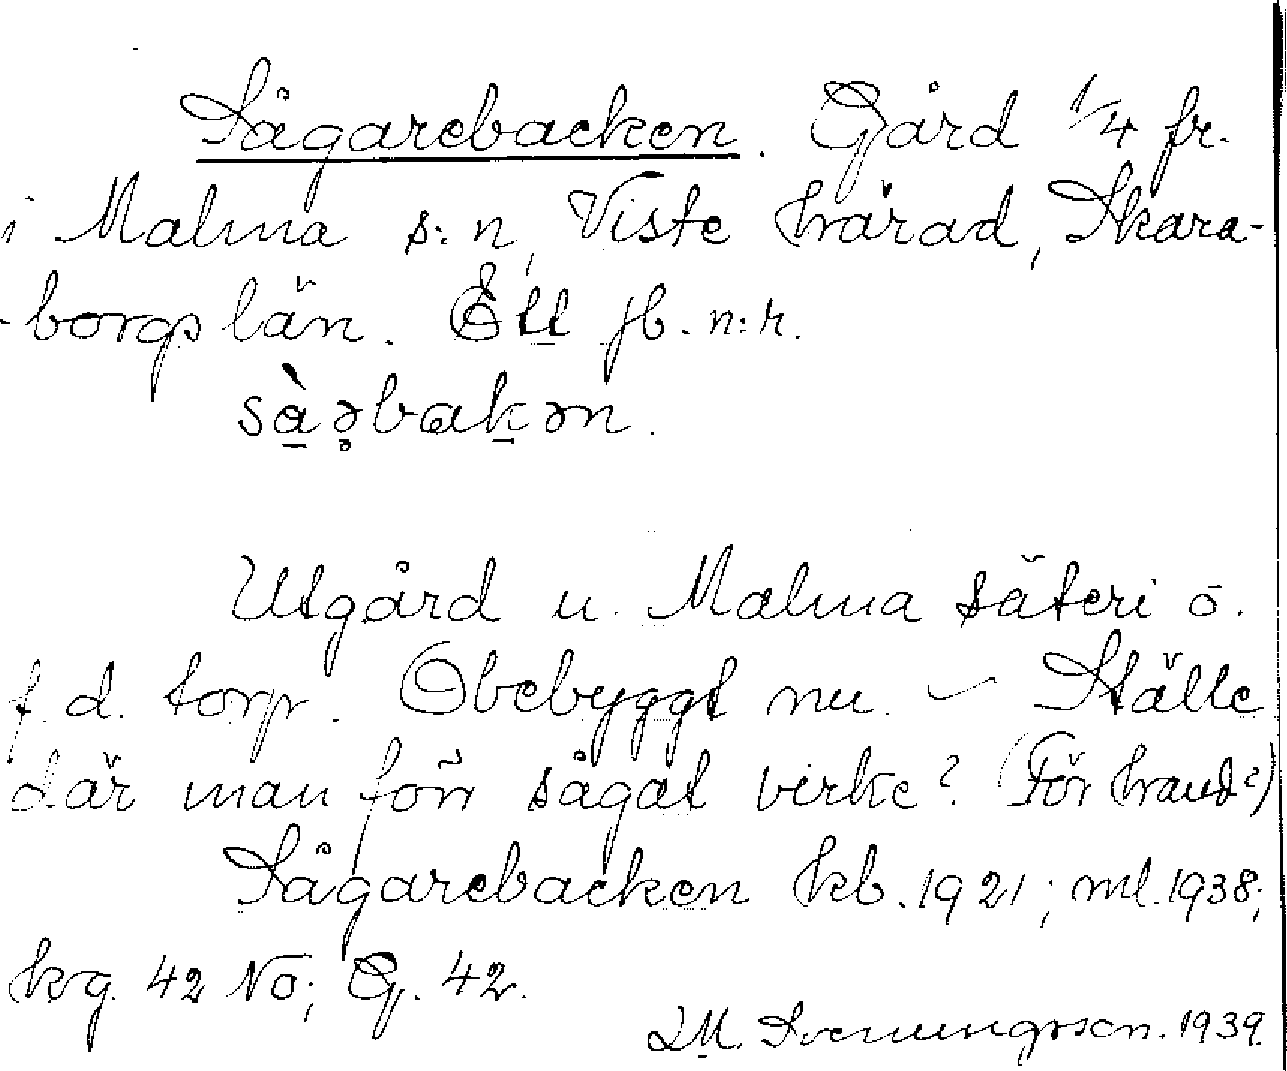 Sågarebacken. Gård 1/4 fr.
i Malma s:n, Viste härad, Skara-
-borgs län. Ett jb. n:r.
sà̱ə̥bak̠ən.
Utgård u. Malma säteri o.
f.d. torp. Obebyggt nu. – Ställe
där man förr sågat virke? (För hand?)
Sågarebacken kb. 1921; ml. 1938;
kg. 42 NO; G. 42.
I.M. Svenungsson. 1939.